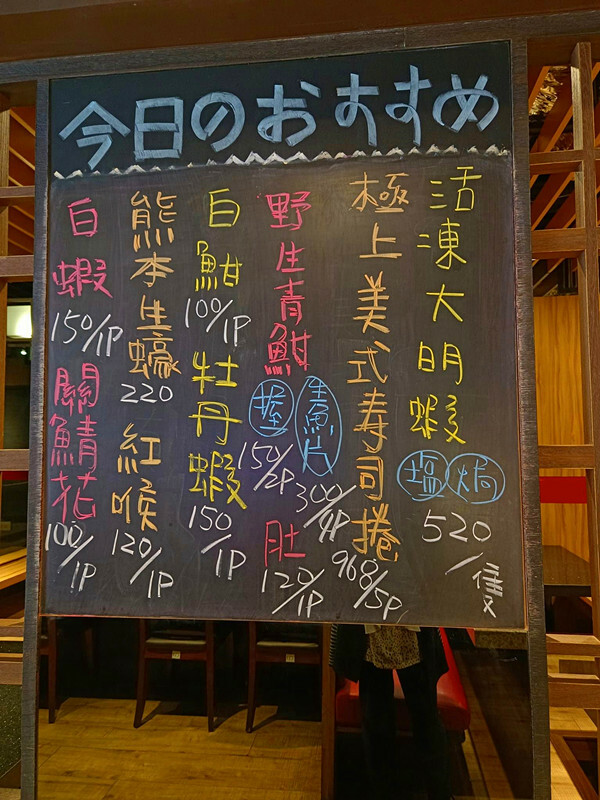 今日のおすすめ
活凍大明蝦
塩 焗
520/隻
極上美式寿司捲
968/5P
野生青魽
握 150/2P
生魚片 300/4P
肚 120/1P
白魽
100/1P
牡丹蝦
150/1P
熊本生蠔
220
紅喉
120/1P
白蝦
150/1P
關鯖花
100/1P